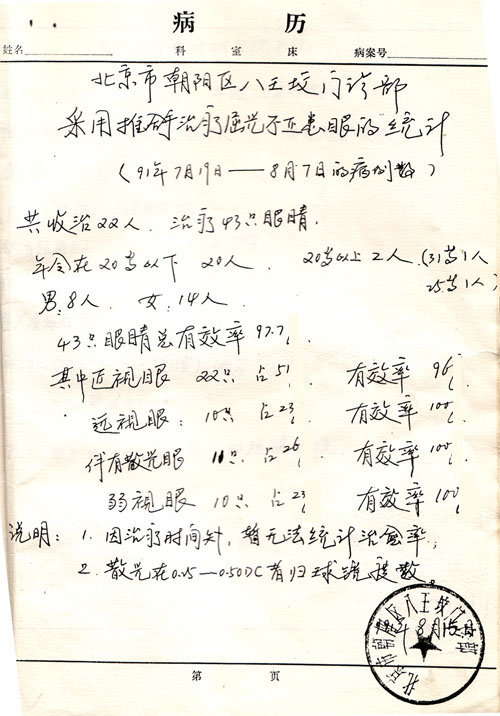 病历
姓名 科 室 床 病案号
北京市朝阳区八王坟门诊部
采用推研治疗屈光不正患眼的统计
(91年7月19日——8月7日的病例数)
共收治22人. 治疗43只眼睛.
年令在20岁以下 20人. 20岁以上2人.(31岁1人
25岁1人)
男:8人. 女:14人.
43只眼睛总有效率97.7%
其中近視眼 22只 占51% 有效率 96%
远視眼: 10只 占23% 有效率 100%
伴有散光眼 11只. 占26% 有效率 100%
弱視眼 10只 占23% 有效率 100%
说明: 1. 因治疗时间短, 暂无法统计治愈率;
2. 散光在0.25—0.50DC者归球镜度数。
北京市朝阳区八王坟门诊部
8月15日
第 页